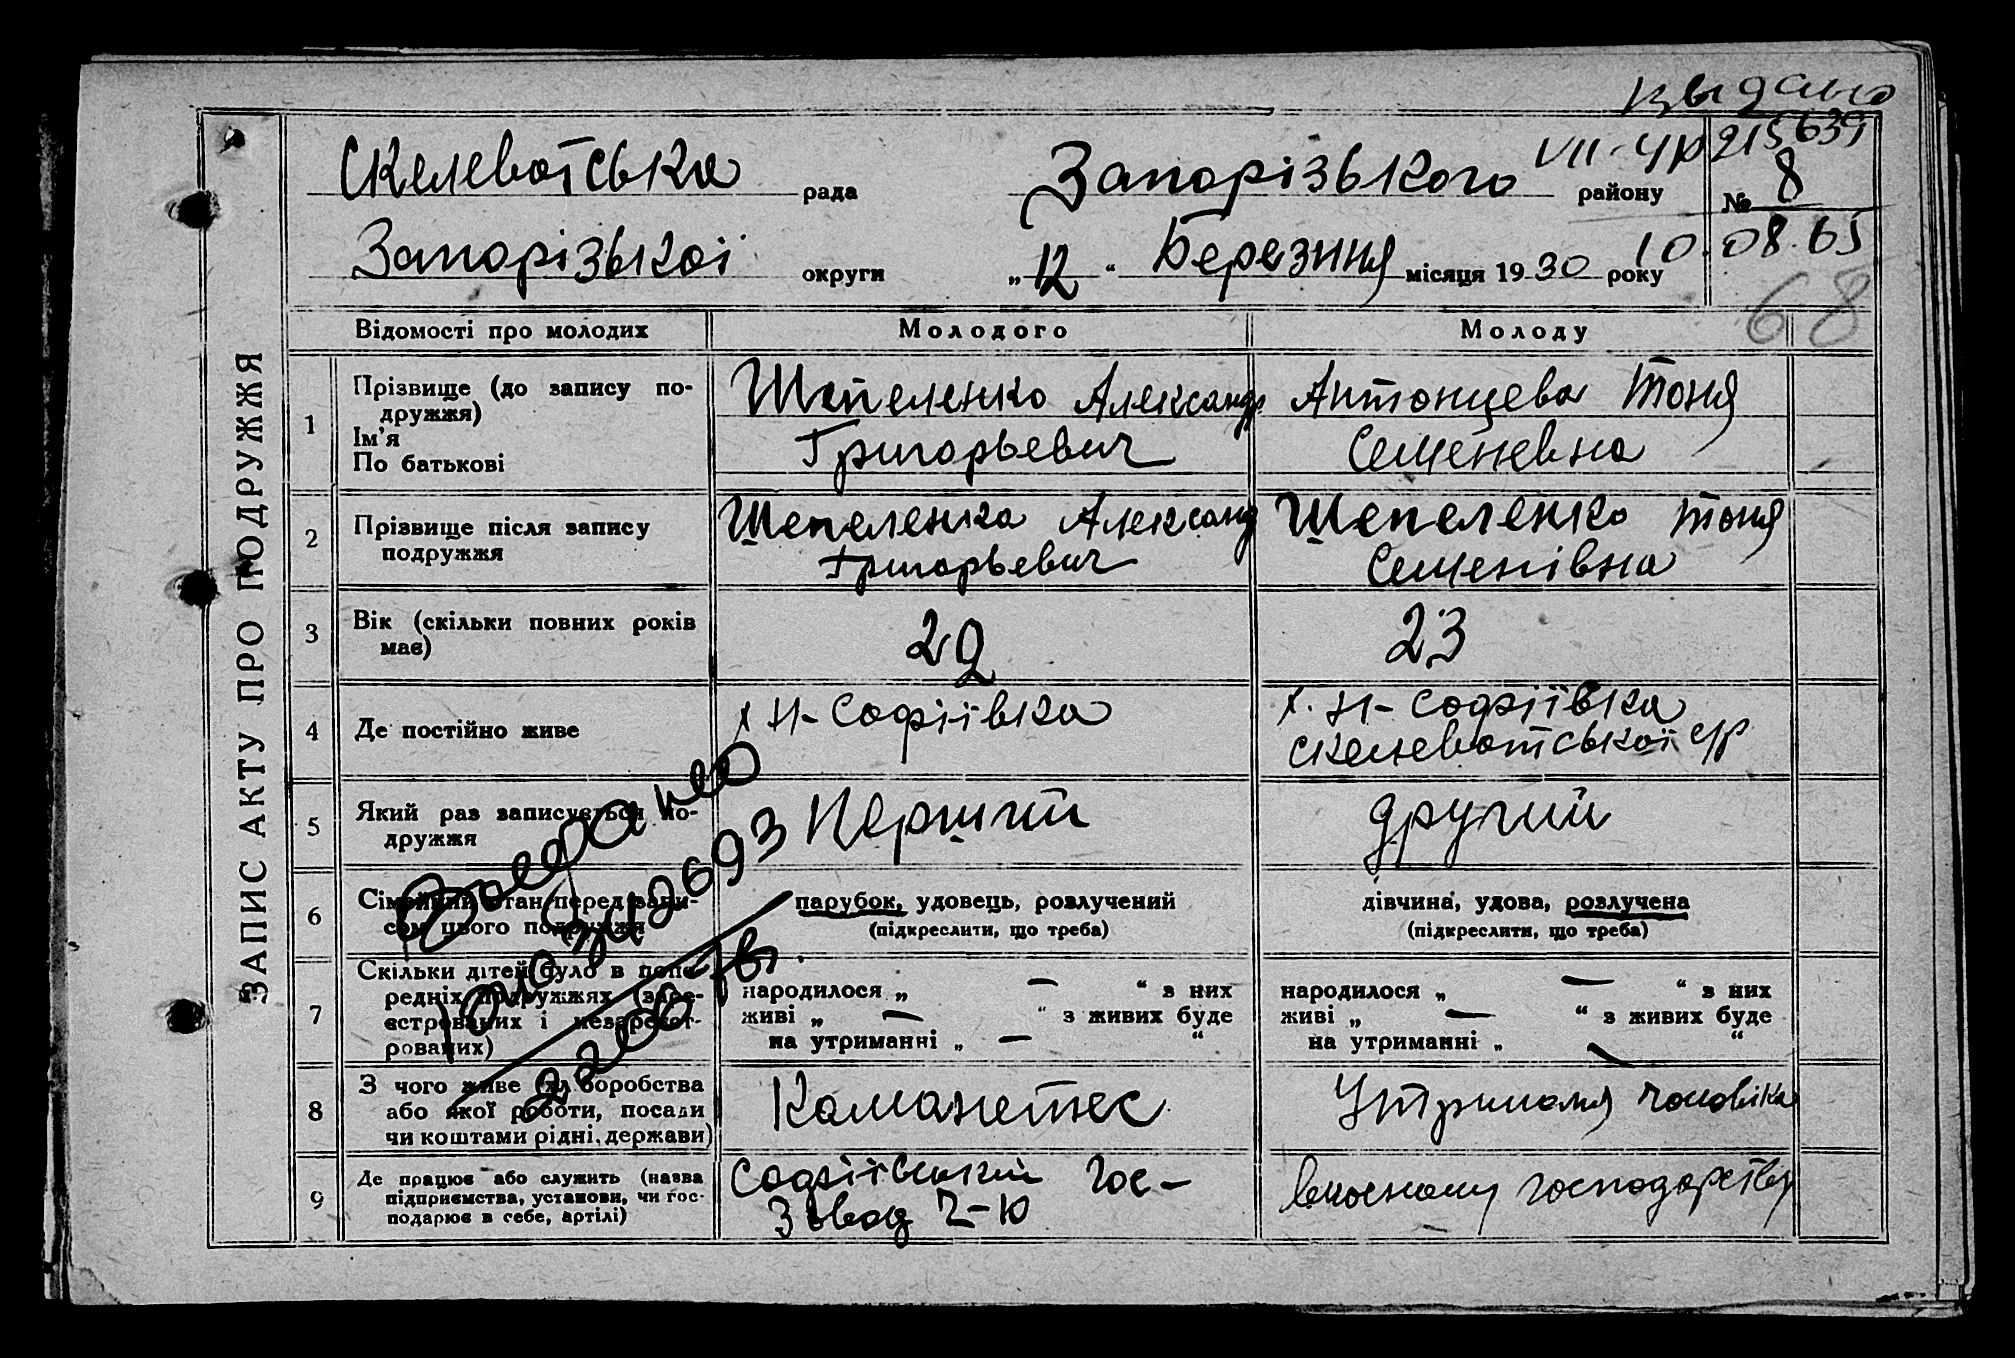 выдано
VII-ЧР 215639
Скелеватська рада Запорізького району № 8
Запорізької округи „12“ Березння місяця 1930 року 10.08.65
68
ЗАПИС АКТУ ПРО ПОДРУЖЖЯ
Відомості про молодих Молодого Молоду
1 Прізвище (до запису подружжя) Ім’я По батькові
Шепеленко Александр Григорьевич
Антонцева Тоня Семеневна
2 Прізвище після запису подружжя
Шепеленка Александ Григорьевич
Шепеленко Тоня Семенівна
3 Вік (скільки повних років має)
29
23
4 Де постійно живе
х Н-Софіївка
х. Н-Софіївка
Скелеватської с/р
5 Який раз записується по-
дружжя
Перший
другий
6 Сімейний стан перед запи-
сом цього подружжя
парубок, удовець, розлучений
(підкреслити, що треба)
дівчина, удова, розлучена
(підкреслити, що треба)
7 Скільки дітей було в попе-
редніх подружжях (заре-
єстрованих і незареєст-
рованих)
народилося „ — “ з них
живі „ — “ з живих буде
на утриманні „ — “
народилося „ — “ з них
живі „ — “ з живих буде
на утриманні „ — “
8 З чого живе (хліборобства
або якої роботи, посади
чи коштами рідні, держави)
Утриманя чоловіка
9 Де працює або служить (назва
підприємства, установи, чи гос-
подарює в себе, артілі)
Софіївський Гос-
Завод
власному господарству